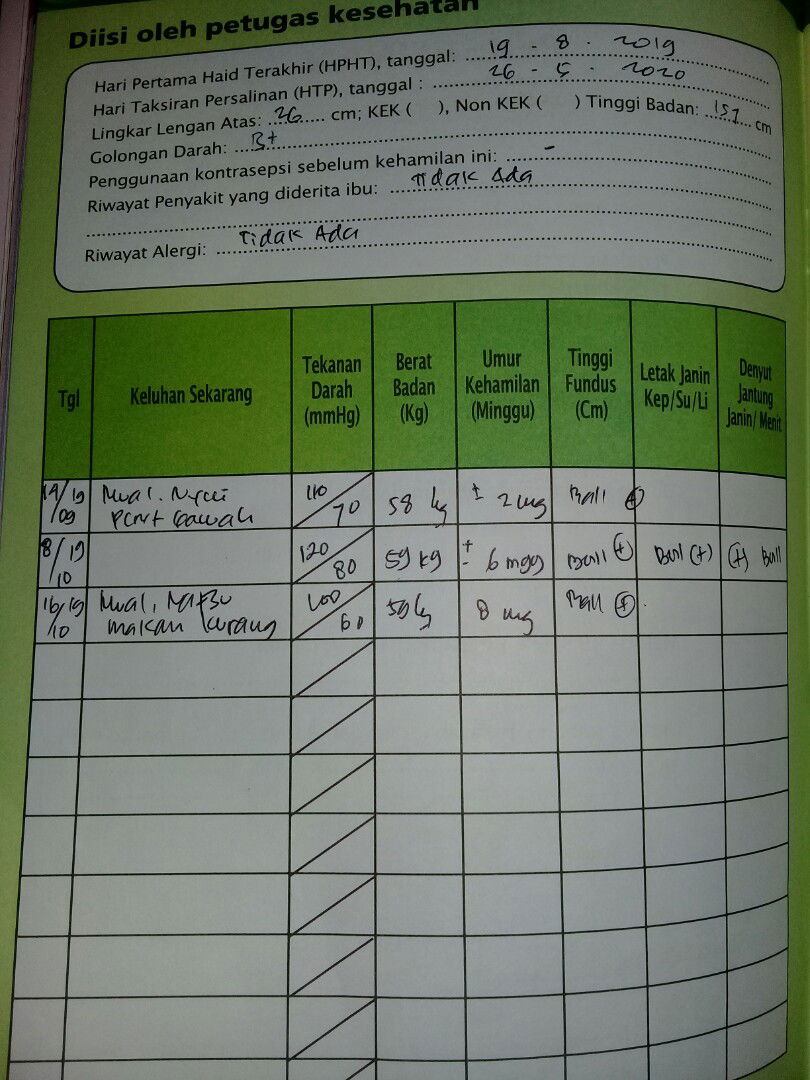 Diisi oleh petugas kesehatan
Hari Pertama Haid Terakhir (HPHT), tanggal: 19 - 8 - 2019
Hari Taksiran Persalinan (HTP), tanggal : 26 - 5 - 2020
Lingkar Lengan Atas: 26 cm; KEK ( ), Non KEK ( ) Tinggi Badan: 157 cm
Golongan Darah: B+
Penggunaan kontrasepsi sebelum kehamilan ini: -
Riwayat Penyakit yang diderita ibu: Tidak Ada
Riwayat Alergi: Tidak Ada
Tgl
Keluhan Sekarang
Tekanan Darah (mmHg)
Berat Badan (Kg)
Umur Kehamilan (Minggu)
Tinggi Fundus (Cm)
Letak Janin Kep/Su/Li
Denyut Jantung Janin/ Menit
/19 /09 Mual. Nyeri 110/70 58 kg ± 2 mg Ball (+)
bawah
8/19 /10 120/80 59 kg ± 6 mgg Ball (+) Ball (+) (+) Ball
16/19 /10 Mual, Nafsu 100/60 59 kg 8 mg Ball (+)
makan kurang